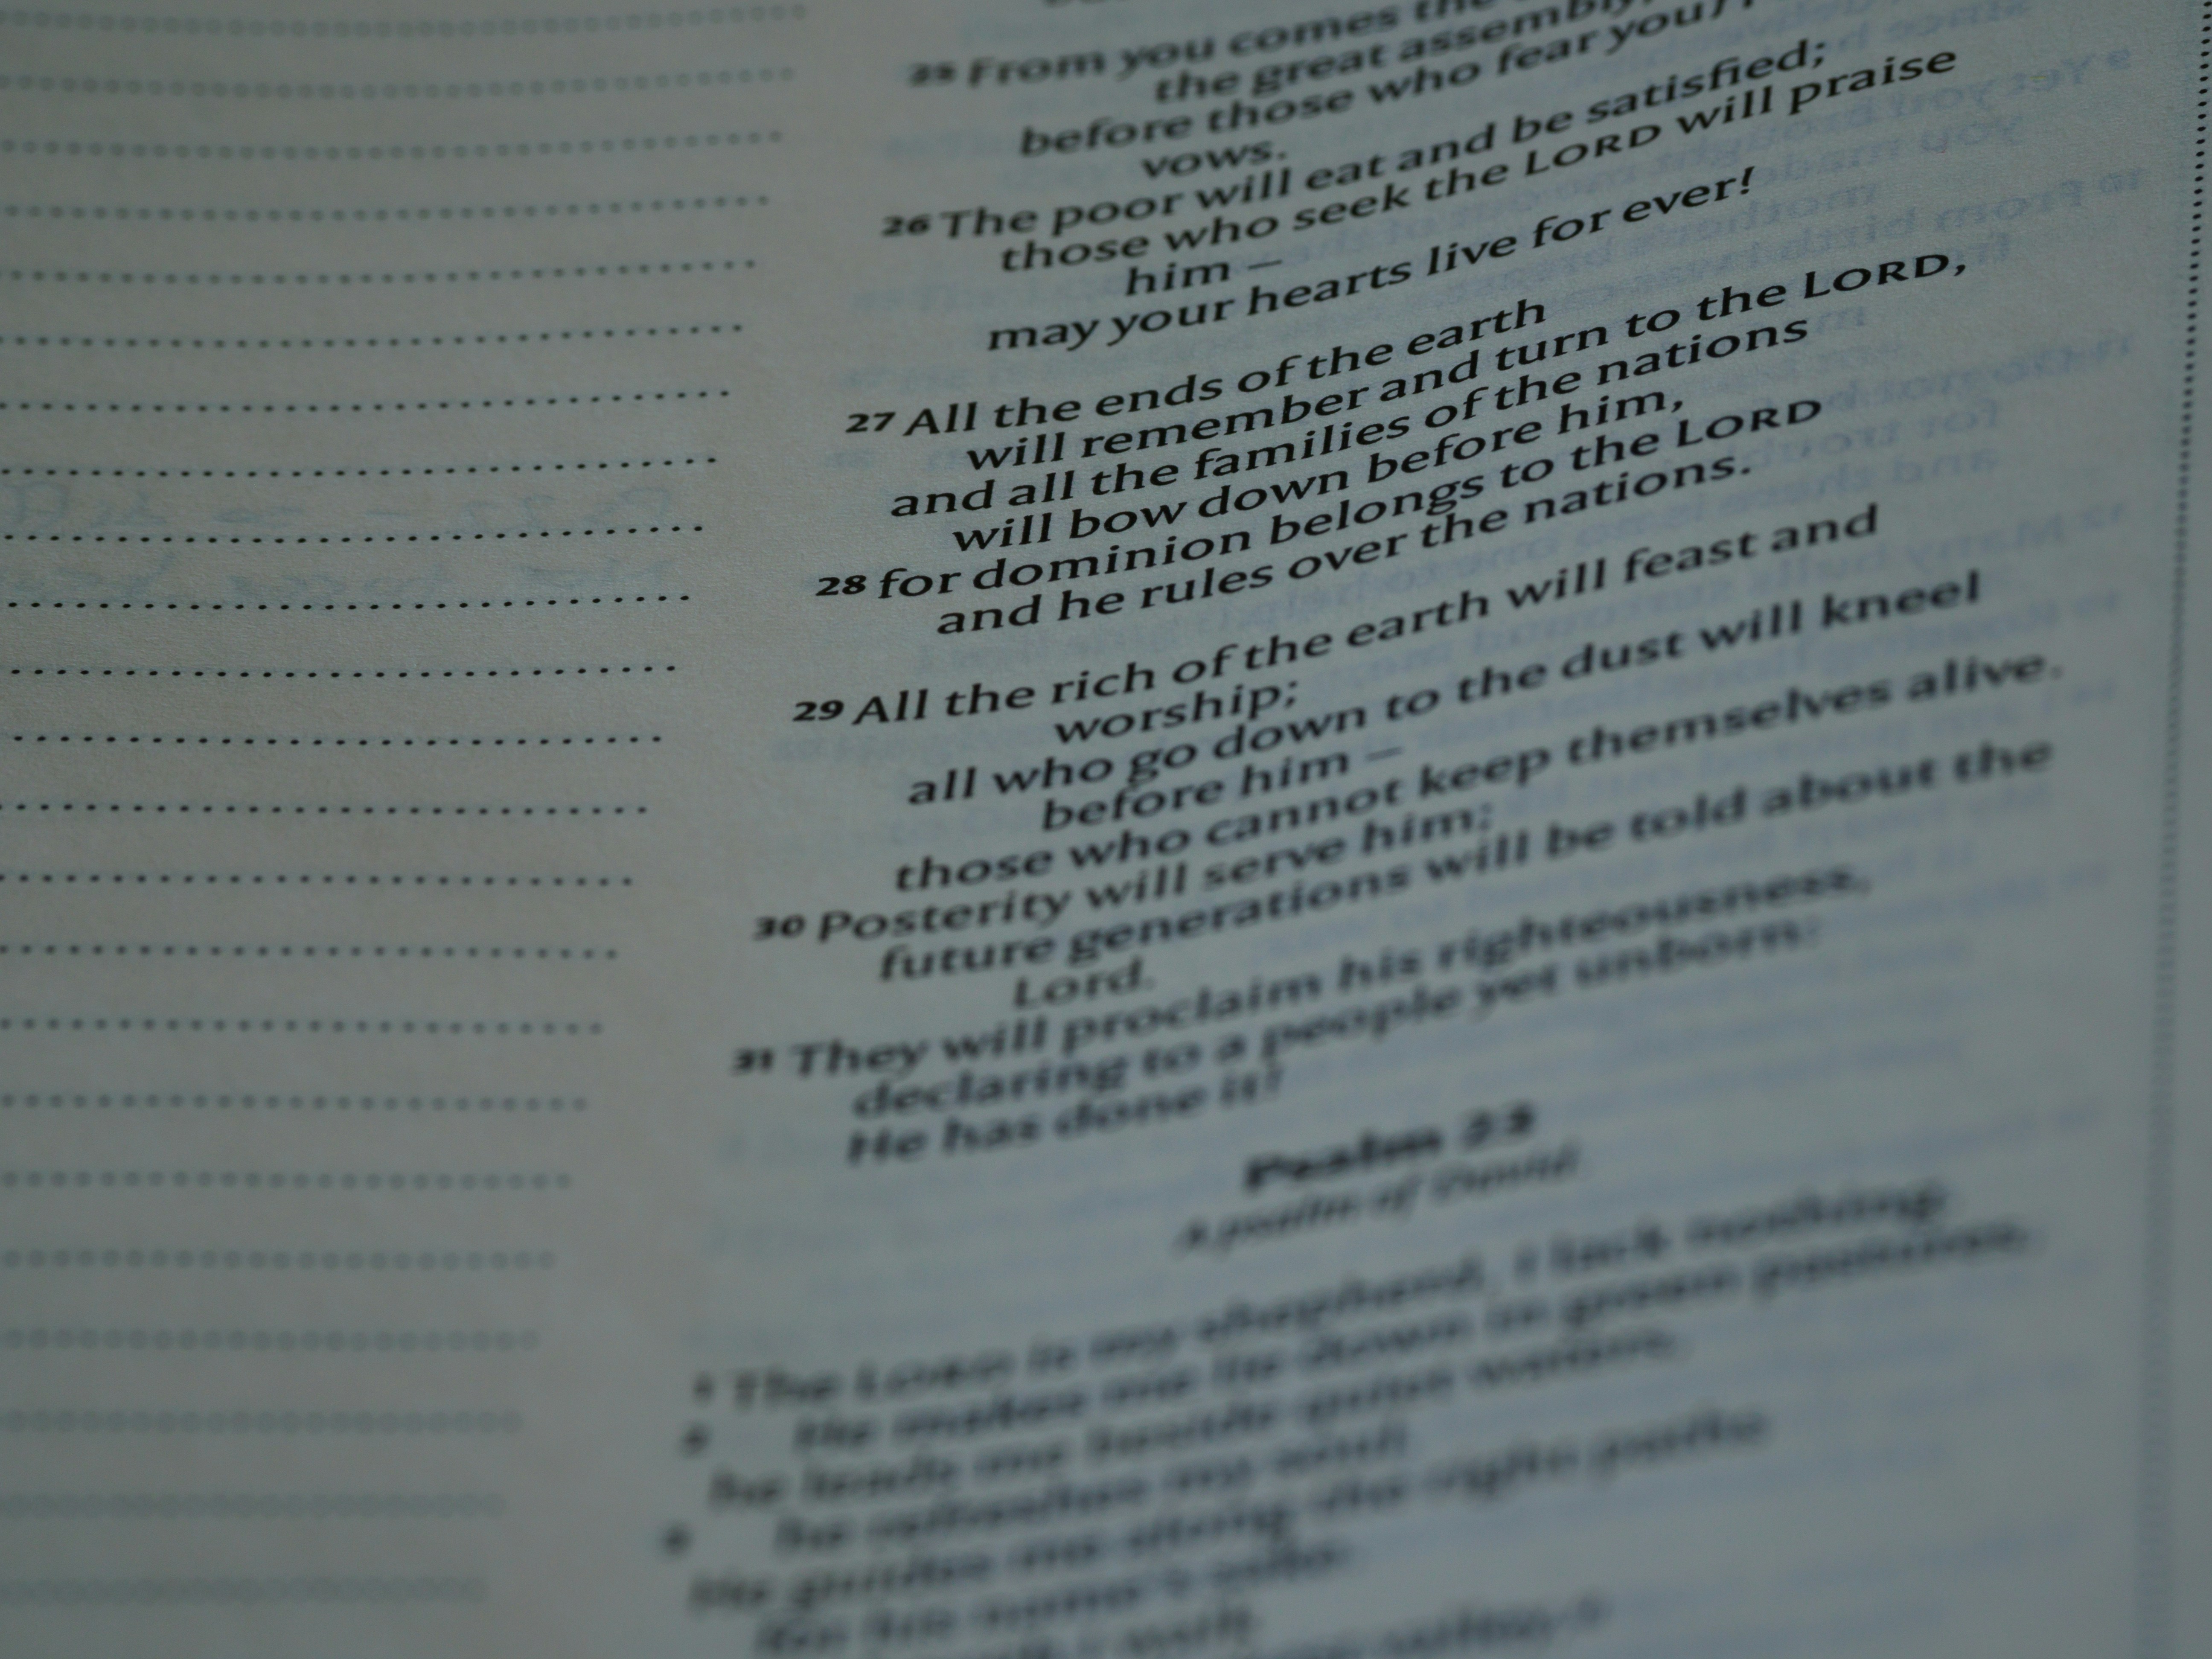 25 From you comes the
the great assembly;
before those who fear you
vows.
26 The poor will eat and be satisfied;
those who seek the LORD will praise
him –
may your hearts live for ever!
27 All the ends of the earth
will remember and turn to the LORD,
and all the families of the nations
will bow down before him,
28 for dominion belongs to the LORD
and he rules over the nations.
29 All the rich of the earth will feast and
worship;
all who go down to the dust will kneel
before him –
those who cannot keep themselves alive.
30 Posterity will serve him;
future generations will be told about the
Lord.
31 They will proclaim his righteousness,
declaring to a people yet unborn:
He has done it!
Psalm 23
A psalm of David.
1 The LORD is my shepherd, I lack nothing.
2 He makes me lie down in green pastures,
he leads me beside quiet waters,
3 he refreshes my soul.
He guides me along the right paths
for his name's sake.